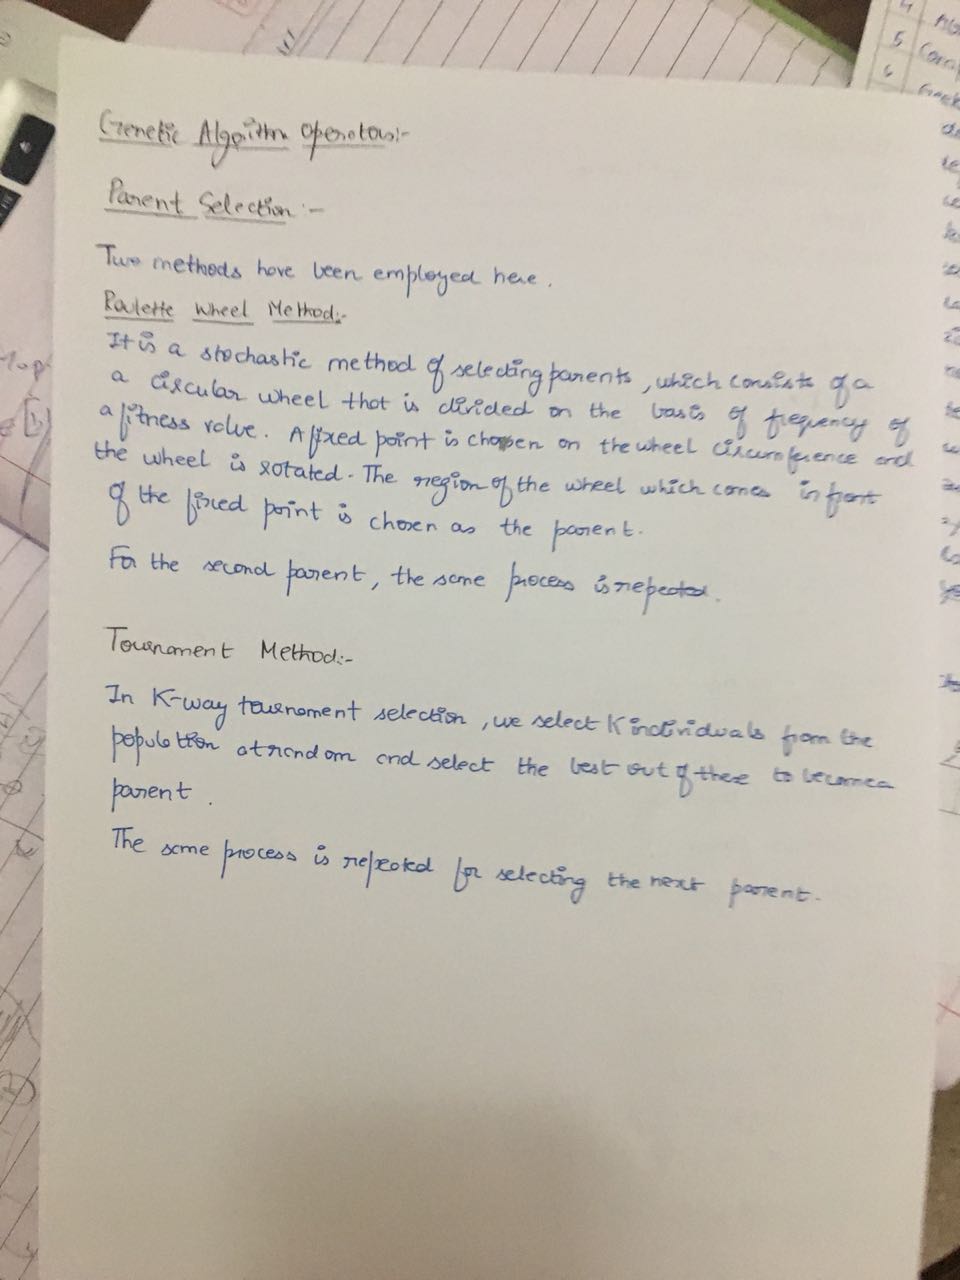 Genetic Algorithm Operators:-
Parent Selection :-
Two methods have been employed here.
Roulette Wheel Method:-
It is a stochastic method of selecting parents, which consists of a
a circular wheel that is divided on the basis of frequency of
a fitness value. A fixed point is chosen on the wheel circumference and
the wheel is rotated. The region of the wheel which comes in front
of the fixed point is chosen as the parent.
For the second parent, the same process is repeated.
Tournament Method:-
In K-way tournament selection, we select K individuals from the
population at random and select the best out of these to become a
parent.
The same process is repeated for selecting the next parent.
4
5
6